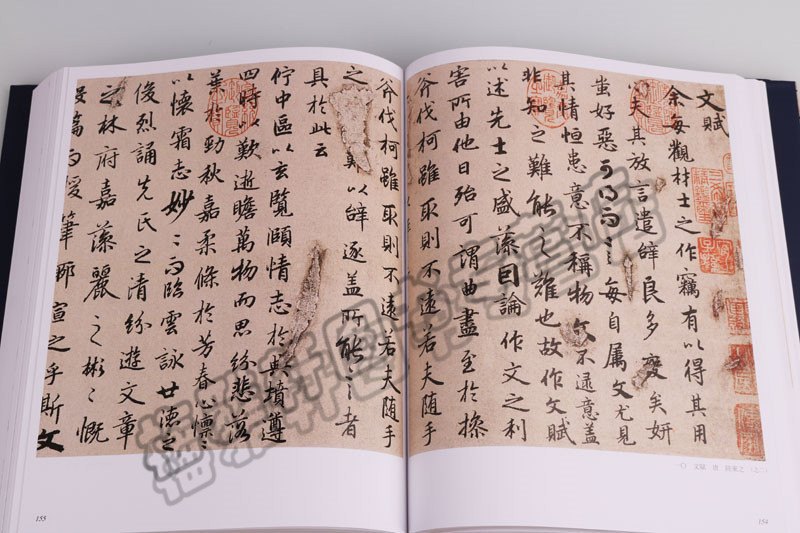 文賦
余每觀材士之作竊有以得其用
心夫其放言遣辭良多變矣妍
蚩好惡可得而言每自屬文尤見
其情恒患意不稱物文不逮意蓋
非知之難能之難也故作文賦
以述先士之盛藻因論作文之利
害所由他日殆可謂曲盡至於操
斧伐柯雖取則不遠若夫随手
斧伐柯雖取則不遠若夫随手
之難以辭逐盖所能言者
具於此云
佇中區以玄覽頤情志於典墳遵
四時以歎逝瞻萬物而思紛悲落
葉於勁秋嘉柔條於芳春心懍〻
以懷霜志妙〻而臨雲詠世德之
俊烈誦先民之清紛遊文章
之林府嘉藻麗之彬〻慨
投篇而援筆聊宣之乎斯文
一〇 文賦 唐 陸柬之（之二）
155
154